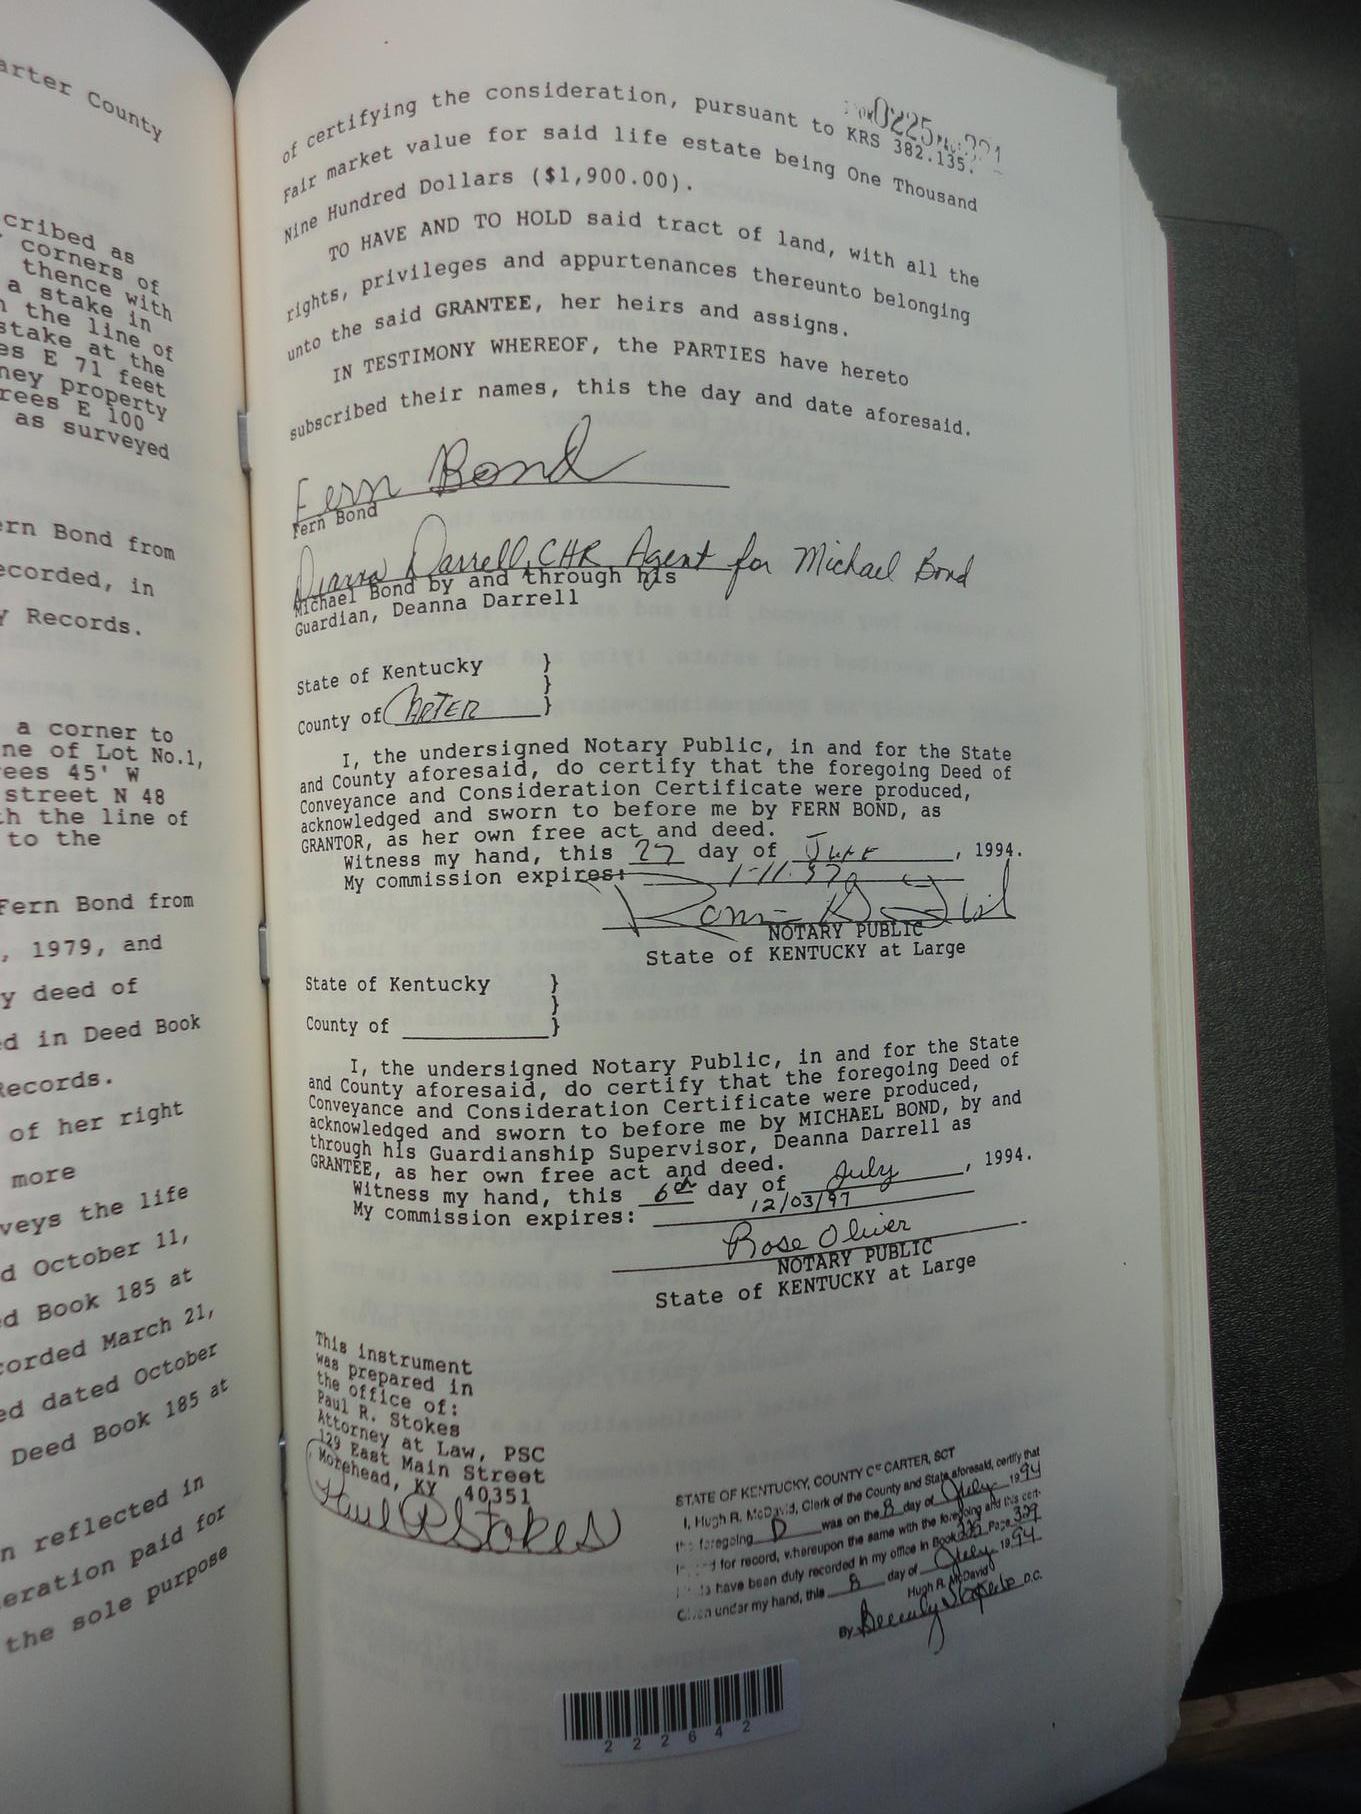 arter County
cribed as
corners of
thence with
a stake in
the line of
stake at the
es E 71 feet
ney property
rees E 100
as surveyed
ern Bond from
ecorded, in
y Records.
a corner to
ne of Lot No.1,
rees 45' W
street N 48
th the line of
to the
Fern Bond from
, 1979, and
y deed of
ed in Deed Book
Records.
of her right
more
veys the life
d October 11,
ed Book 185 at
corded March 21,
ed dated October
Deed Book 185 at
n reflected in
eration paid for
the sole purpose
0225
of certifying the consideration, pursuant to KRS 382.135.
Fair market value for said life estate being One Thousand
Nine Hundred Dollars ($1,900.00).
TO HAVE AND TO HOLD said tract of land, with all the
rights, privileges and appurtenances thereunto belonging
unto the said GRANTEE, her heirs and assigns.
IN TESTIMONY WHEREOF, the PARTIES have hereto
subscribed their names, this the day and date aforesaid.
Fern Bond
Fern Bond
Darrell, CHR Agent for Michael Bond
Michael Bond by and through his
Guardian, Deanna Darrell
State of Kentucky }
}
County of CARTER }
I, the undersigned Notary Public, in and for the State
and County aforesaid, do certify that the foregoing Deed of
Conveyance and Consideration Certificate were produced,
acknowledged and sworn to before me by FERN BOND, as
GRANTOR, as her own free act and deed.
Witness my hand, this 27 day of June, 1994.
My commission expires:
NOTARY PUBLIC
State of KENTUCKY at Large
State of Kentucky }
}
County of }
I, the undersigned Notary Public, in and for the State
and County aforesaid, do certify that the foregoing Deed of
Conveyance and Consideration Certificate were produced,
acknowledged and sworn to before me by MICHAEL BOND, by and
through his Guardianship Supervisor, Deanna Darrell as
GRANTEE, as her own free act and deed.
Witness my hand, this 6th day of July, 1994.
My commission expires: 12/03/97
Rose Oliver
NOTARY PUBLIC
State of KENTUCKY at Large
This instrument
was prepared in
the office of:
Paul R. Stokes
Attorney at Law, PSC
129 East Main Street
Morehead, KY 40351
Paul R Stokes
STATE OF KENTUCKY, COUNTY OF CARTER, SCT
I, Hugh R. McDavid, Clerk of the County and State aforesaid, certify that
the foregoing D was on the 8 day of July 1994
for record, whereupon the same with the foregoing and this cert-
have been duly recorded in my office in Book 225 Page 329
Given under my hand, this 8 day of July 1994
Hugh R. McDavid
By Beverly D.C.
222642